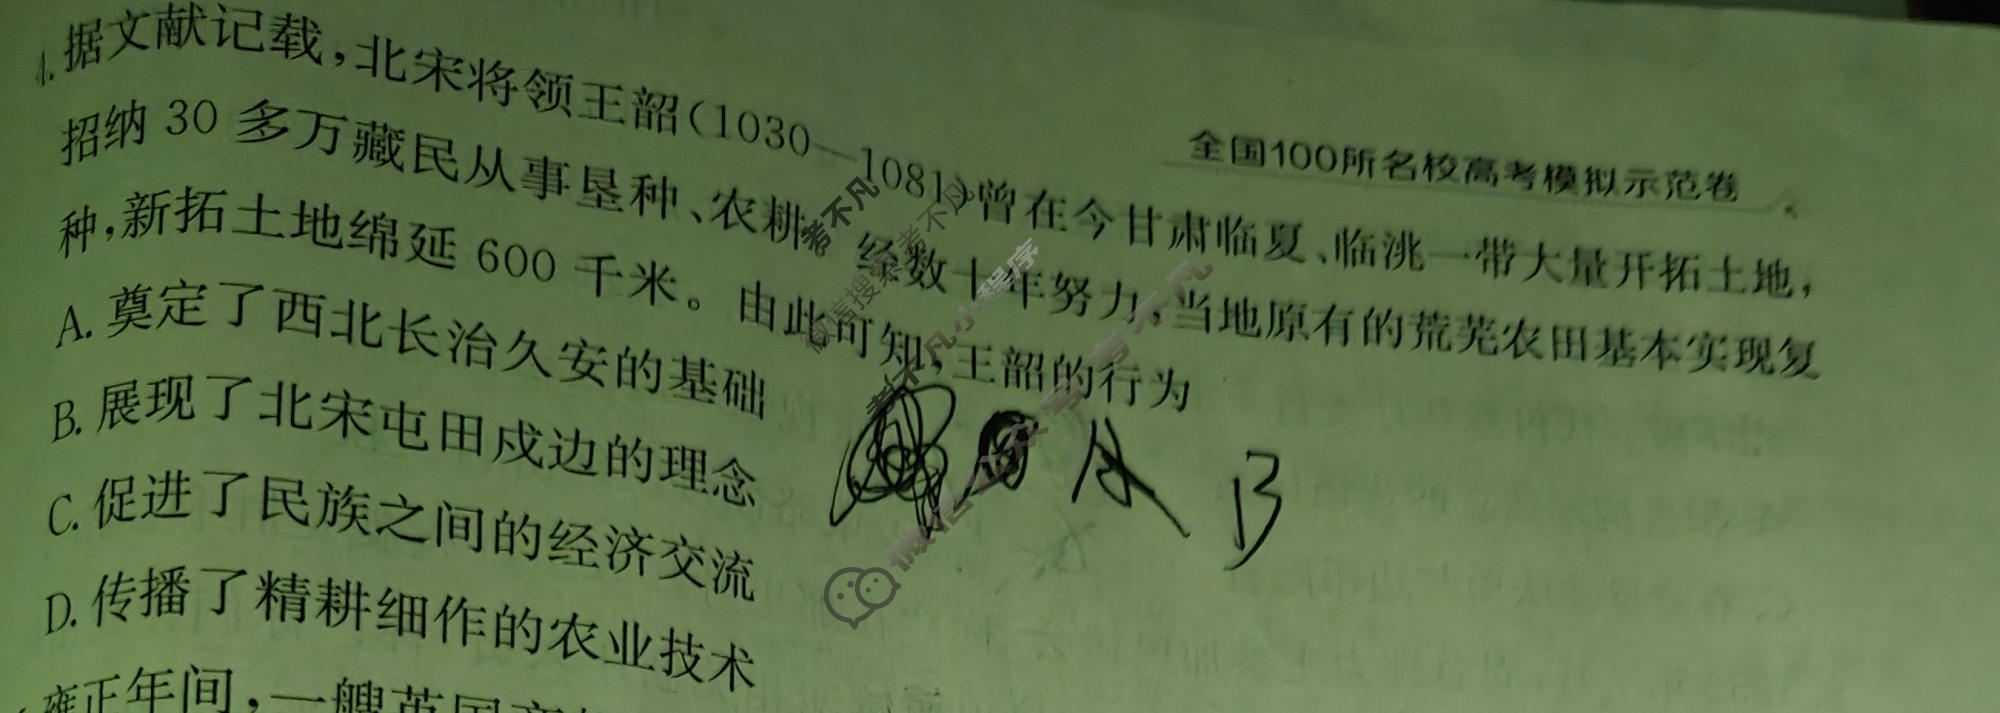 全国100所名校高考模拟示范卷
4.据文献记载,北宋将领王韶(1030—1081)曾在今甘肃临夏、临洮一带大量开拓土地,
招纳 30 多万藏民从事垦种、农耕。经数十年努力,当地原有的荒芜农田基本实现复
种,新拓土地绵延 600 千米。由此可知,王韶的行为
A. 奠定了西北长治久安的基础
B. 展现了北宋屯田戍边的理念
C. 促进了民族之间的经济交流
D. 传播了精耕细作的农业技术
A B
雍正年间,一艘英国商
考不凡
微信搜索考不凡
考不凡小程序
微信公众号考不凡